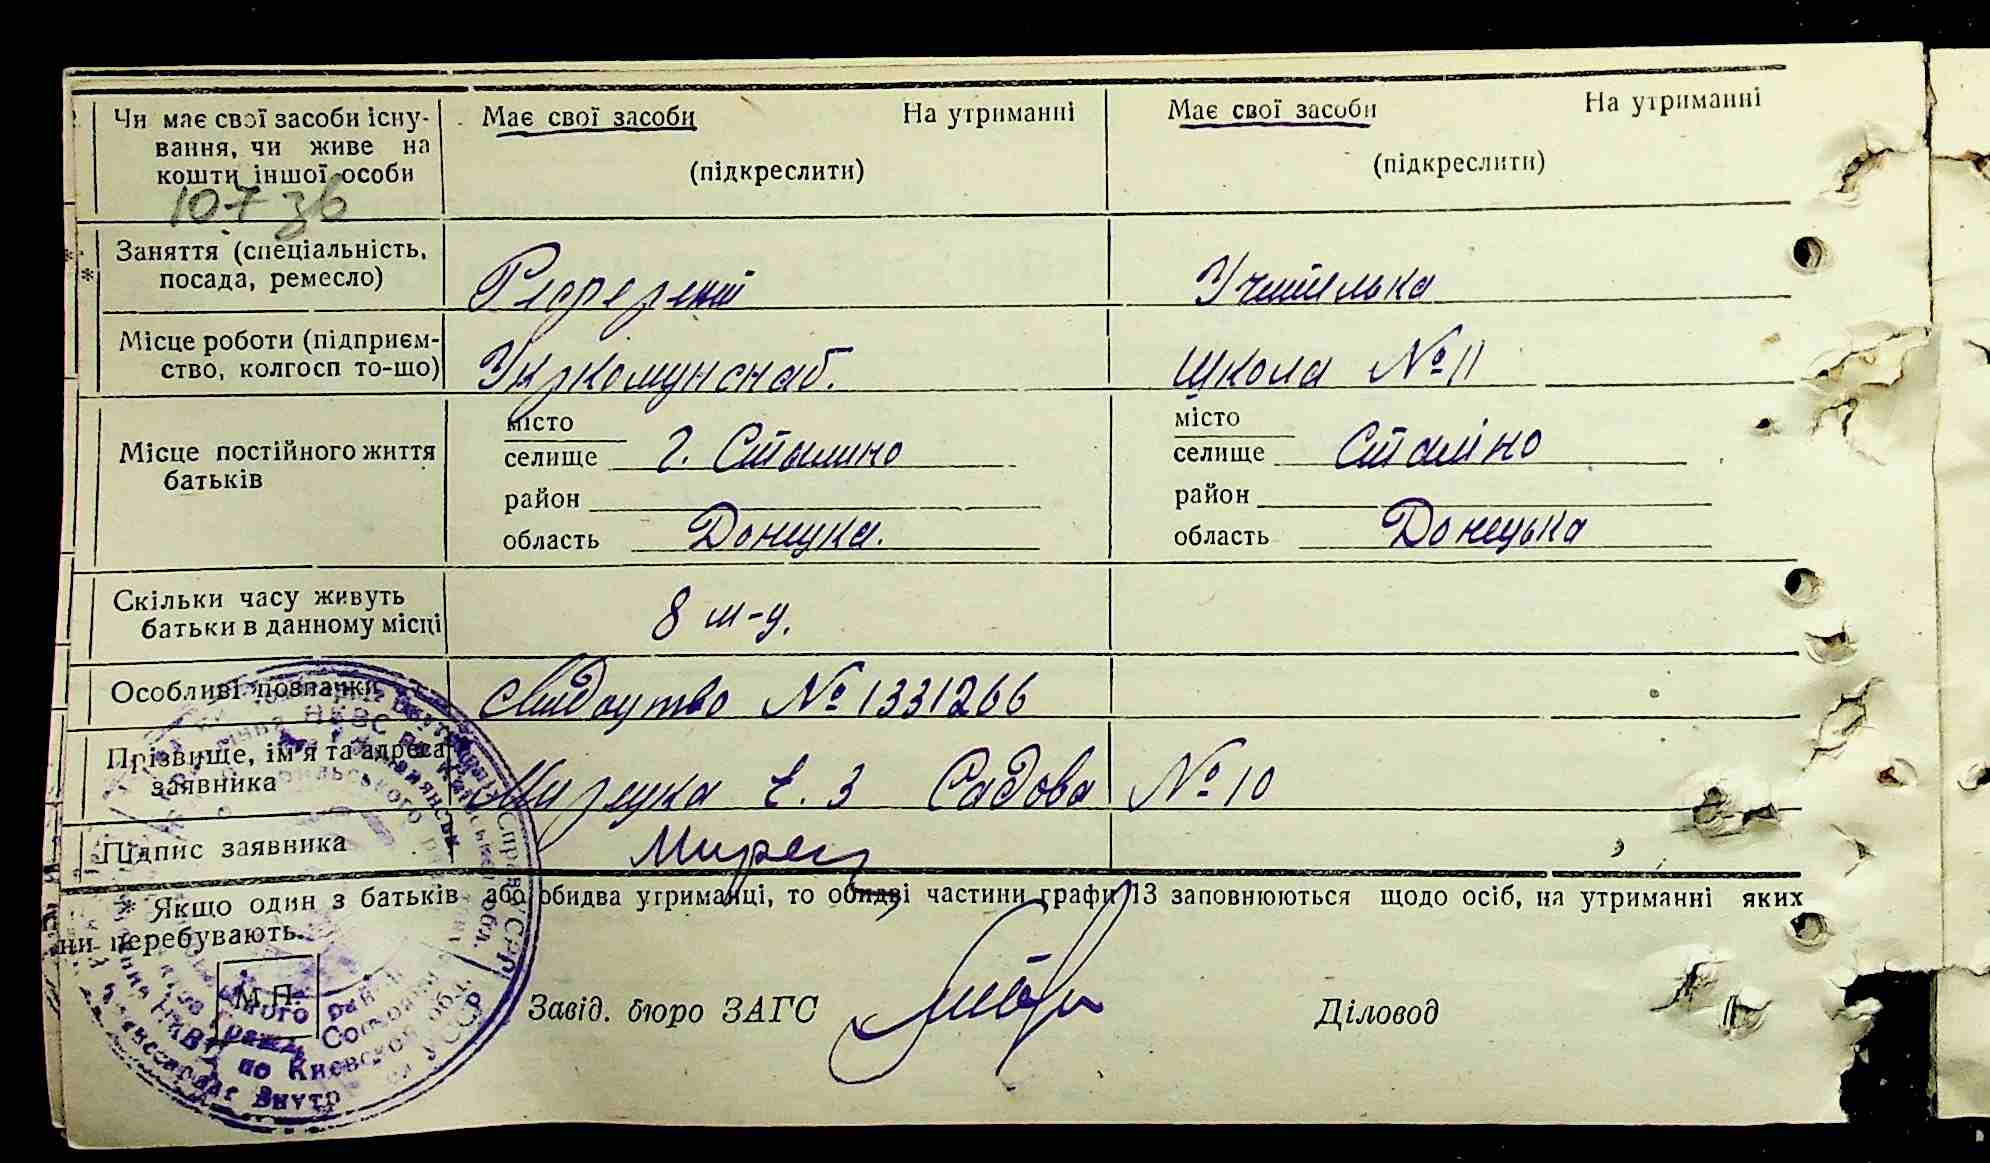 Чи має свої засоби існу-
вання, чи живе на
кошти іншої особи
107 зв
Має свої засоби На утриманні
(підкреслити)
Має свої засоби На утриманні
(підкреслити)
* Заняття (спеціальність,
посада, ремесло)
Референт
Учителька
Місце роботи (підприєм-
ство, колгосп то-що)
Укркомунснаб.
Школа №11
Місце постійного життя
батьків
місто
селище г. Сталино
район
область Донецка.
місто
селище Сталіно
район
область Донецька
Скільки часу живуть
батьки в данному місці
8 м-ц.
Особливі позначки
Свидоцтво № 1331266
Прізвище, ім'я та адреса
заявника
Мирецка Є. З Садова №10
Підпис заявника
Мирец
* Якщо один з батьків або обидва утриманці, то обидві частини графи 13 заповнюються щодо осіб, на утриманні яких
перебувають.
М.П.
Завід. бюро ЗАГС
Діловод
НКВД по Киевской обл.
УССР